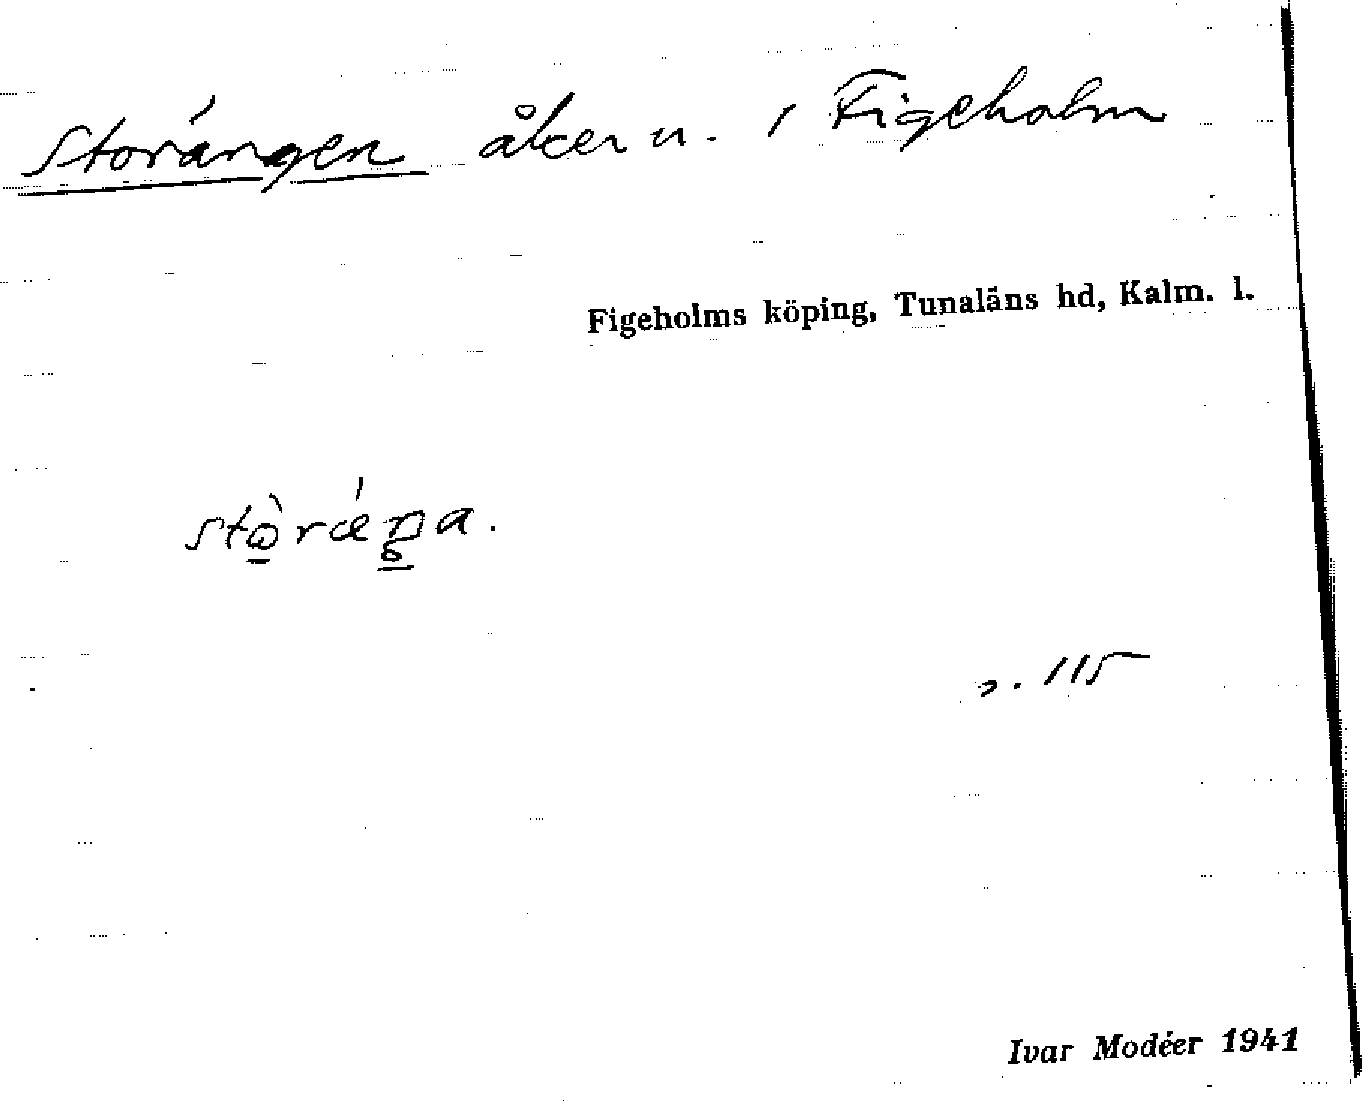 Storängen åker n. i Figeholm
Figeholms köping, Tunaläns hd, Kalm. l.
stò̱ráŋa.
s. 115
Ivar Modéer 1941